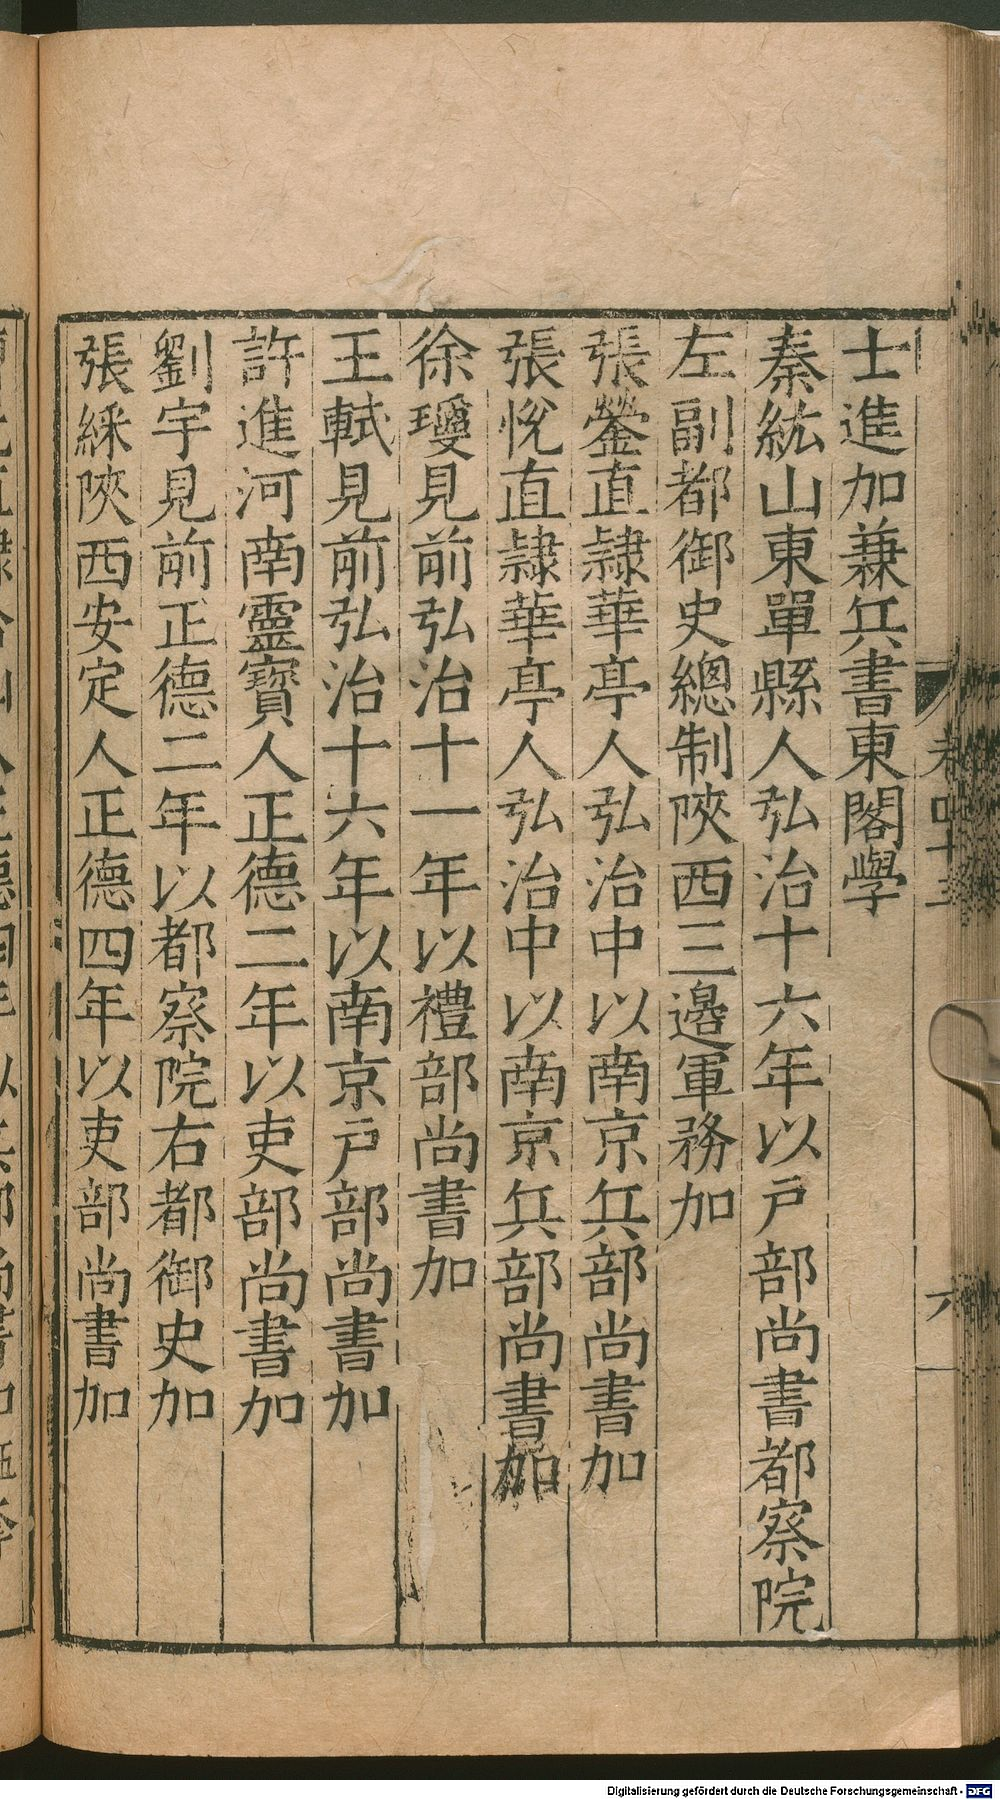 士進加兼兵書東閣學
秦紘山東單縣人弘治十六年以戸部尚書都察院
左副都御史總制陜西三邊軍務加
張鎣直隷華亭人弘治中以南京兵部尚書加
張悅直隷華亭人弘治中以南京兵部尚書加
徐瓊見前弘治十一年以禮部尚書加
王軾見前弘治十六年以南京戸部尚書加
許進河南靈寶人正德二年以吏部尚書加
劉宇見前正德二年以都察院右都御史加
張綵陜西安定人正德四年以吏部尚書加
卷四十三
六
Digitalisierung gefördert durch die Deutsche Forschungsgemeinschaft - DFG